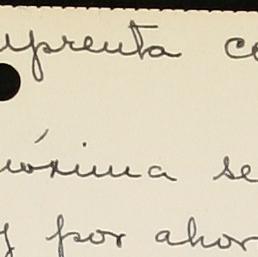 uprenta ce
róxima se
y por ahor